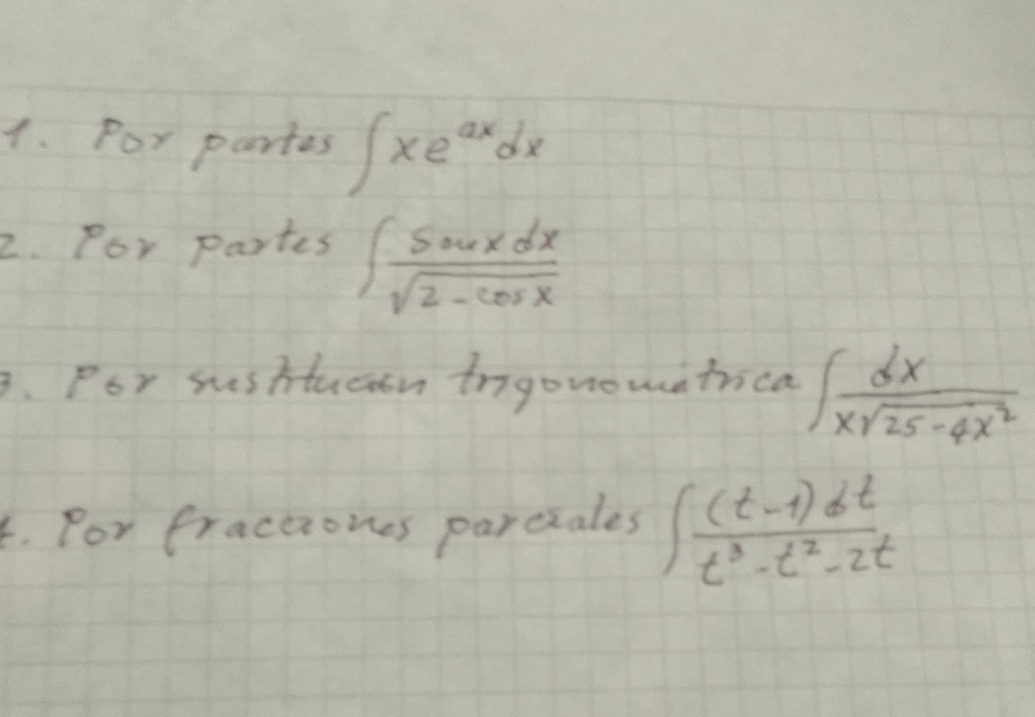 1. Por partes ∫ x e^{ax} dx
2. Por partes ∫ \frac{sen x dx}{\sqrt{2 - cos x}}
3. Por sustitución trigonométrica ∫ \frac{dx}{x\sqrt{25 - 4x^2}}
4. Por fracciones parciales ∫ \frac{(t-1) dt}{t^3 - t^2 - 2t}